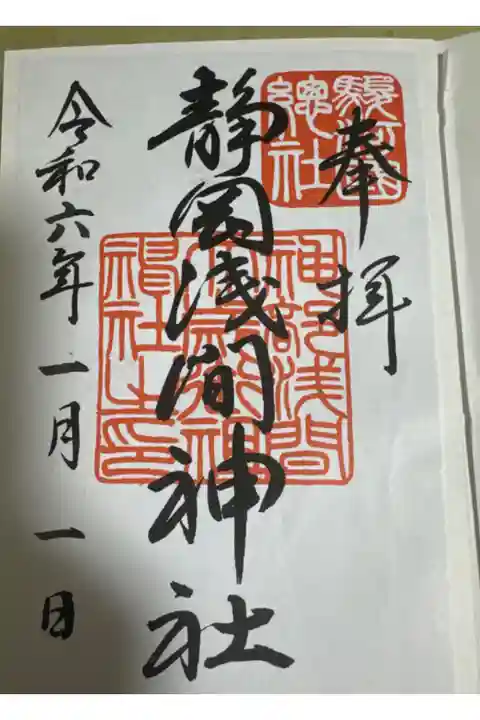 奉拝
駿河国
總社
静岡浅間神社
神部浅間
令和六年一月一日